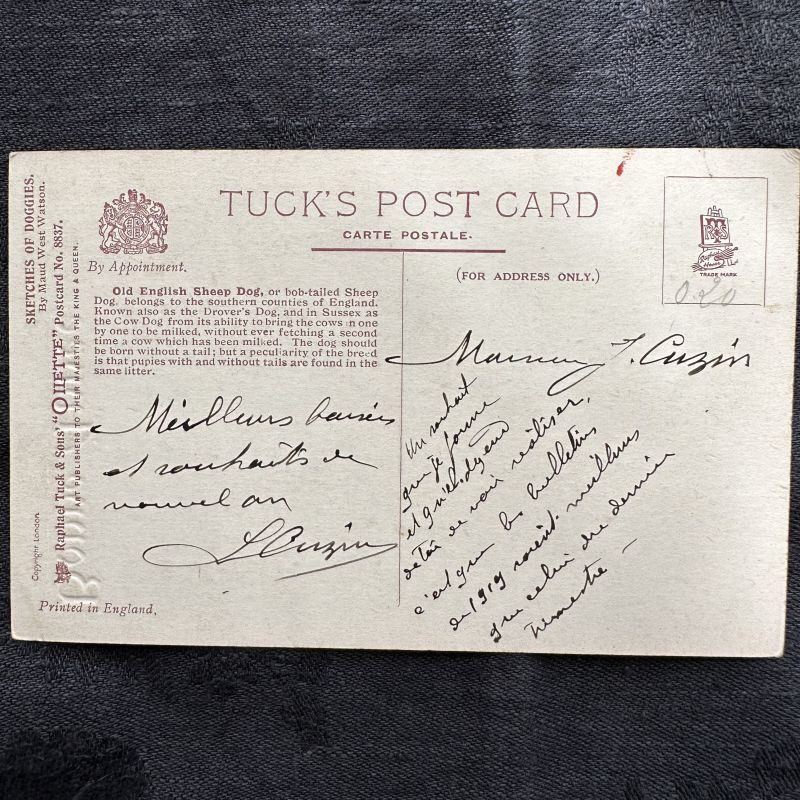 SKETCHES OF DOGGIES.
By Maud West Watson.
Raphael Tuck & Sons' "OILETTE" Postcard No. 8837.
ART PUBLISHERS TO THEIR MAJESTIES THE KING & QUEEN.
Copyright London.
By Appointment.
TUCK'S POST CARD
CARTE POSTALE.
(FOR ADDRESS ONLY.)
TRADE MARK
0.20
Old English Sheep Dog, or bob-tailed Sheep
Dog, belongs to the southern counties of England.
Known also as the Drover's Dog, and in Sussex as
the Cow Dog from its ability to bring the cows in one
by one to be milked, without ever fetching a second
time a cow which has been milked. The dog should
be born without a tail; but a peculiarity of the breed
is that pupies with and without tails are found in the
same litter.
Meilleurs baisers
et souhaits de
nouvel an
L Cuzin
Printed in England.
J. Cuzin
Un souhait
que je forme
et qu'il dépend
de toi de voir réaliser,
c'est que les bulletins
de 1919 soient meilleurs
que celui du dernier
trimestre -